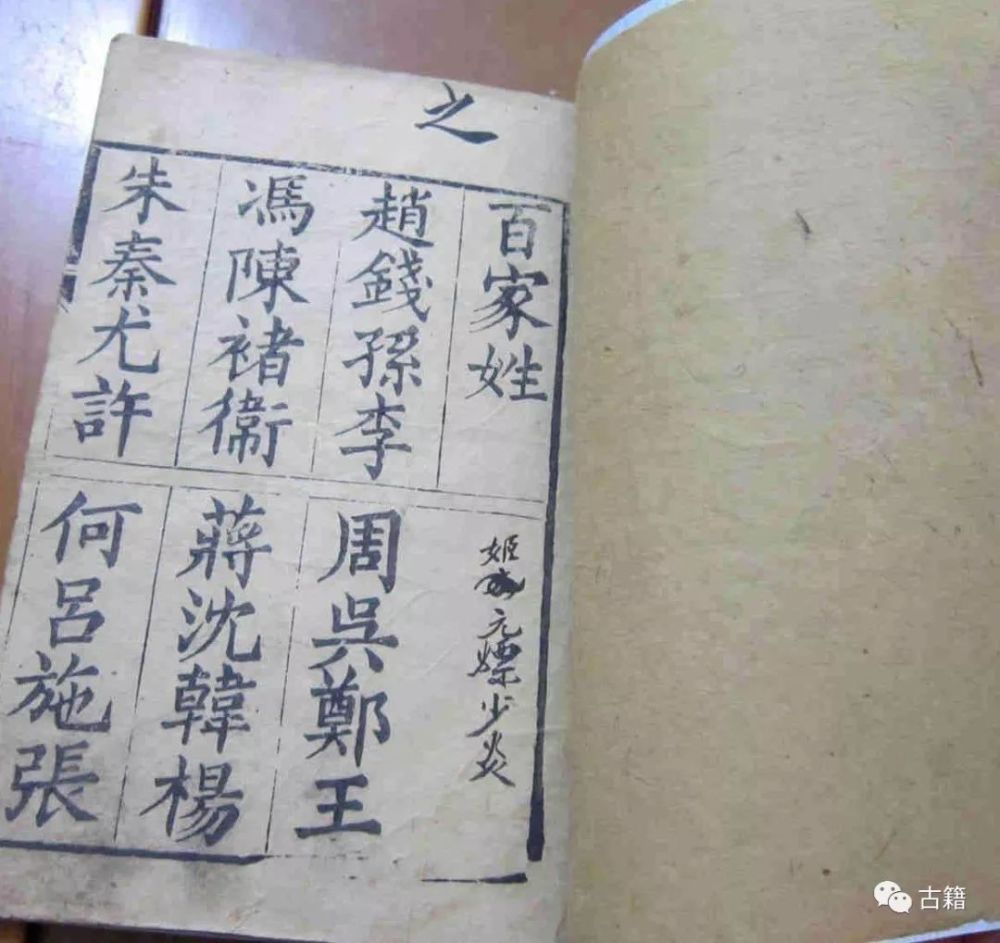 之
百家姓
姬元嫖少炎
趙錢孫李
周吳鄭王
馮陳褚衛
蔣沈韓楊
朱秦尤許
何呂施張
古籍